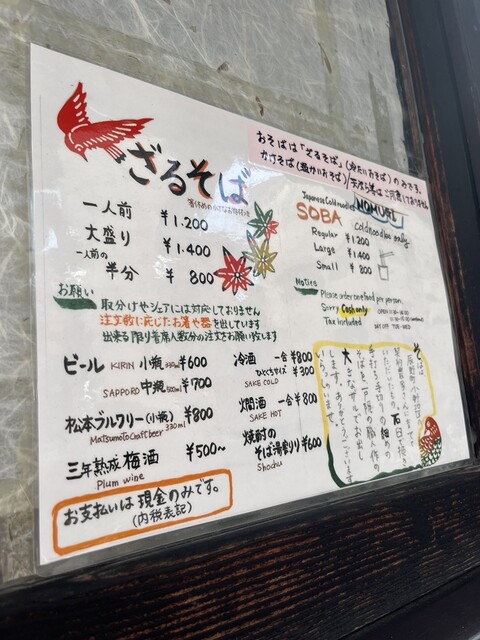 ざるそば
おそばは「ざるそば」(冷たいおそば)のみです。
かけそば(温かいおそば)/天ぷら等はご用意しておりません
一人前 ¥1.200
大盛り ¥1.400
一人前の半分 ¥800
Japanese Cold noodles NOMUGI
SOBA coldnoodles only
Regular ¥1200
Large ¥1400
Small ¥800
お願い
取分けやシェアには対応しておりません
注文数に応じたお箸や器を出しています
出来る限り着席人数分のご注文お願い致します
Notices
Please order one food per person.
Sorry Cash only
Tax included
DAY OFF TUE・WED
ビール KIRIN 小瓶 330ml ¥600
SAPPORO 中瓶 500ml ¥700
松本ブルワリー(小瓶) 330ml ¥800
Matsumoto Craft beer
三年熟成梅酒 ¥500~
Plum wine
冷酒 一合 ¥800
ひとくちサイズ ¥300
SAKE COLD
燗酒 一合 ¥800
SAKE HOT
焼酎のそば湯割り ¥600
Shochu
お支払いは現金のみです。
(内税表記)